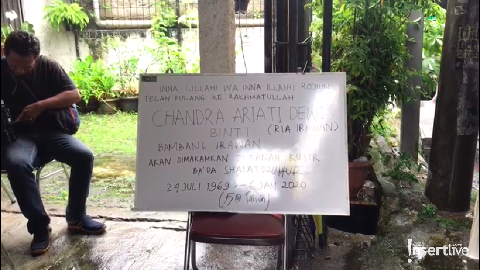 INNA LILLAHI WA INNA ILLAIHI ROJIUN
TELAH PULANG KE RAKHMATULLAH
CHANDRA ARIATI DEWI
BINTI (RIA IRAWAN)
BAMBANG IRAWAN
AKAN DIMAKAMKAN DI TANAH KUSIR
BA'DA SHALAT DZUHUR
24 JULI 1969 — 6 JAN 2020
(50 Tahun)
insertlive